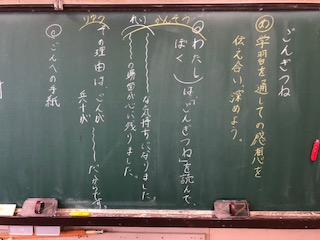 ごんぎつね
め 学習を通しての感想を
伝え合い、深めよう。
わたし
ぼく
は「ごんぎつね」を読んで、
な気持ちになりました。
の場面が心に残りました。
その理由は、ごんが
兵十が
だからです。
ごんへの手紙